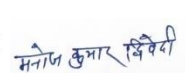 मनोज कुमार द्विवेदी